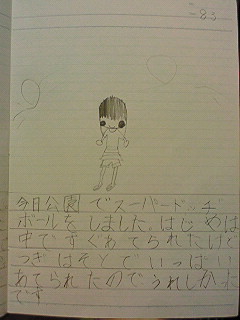 今日公園でスーパードッチ
ボールをしました。はじめは
中ですぐあてられたけど
つぎはそとでいっぱい
あてられたのでうれしかった
です